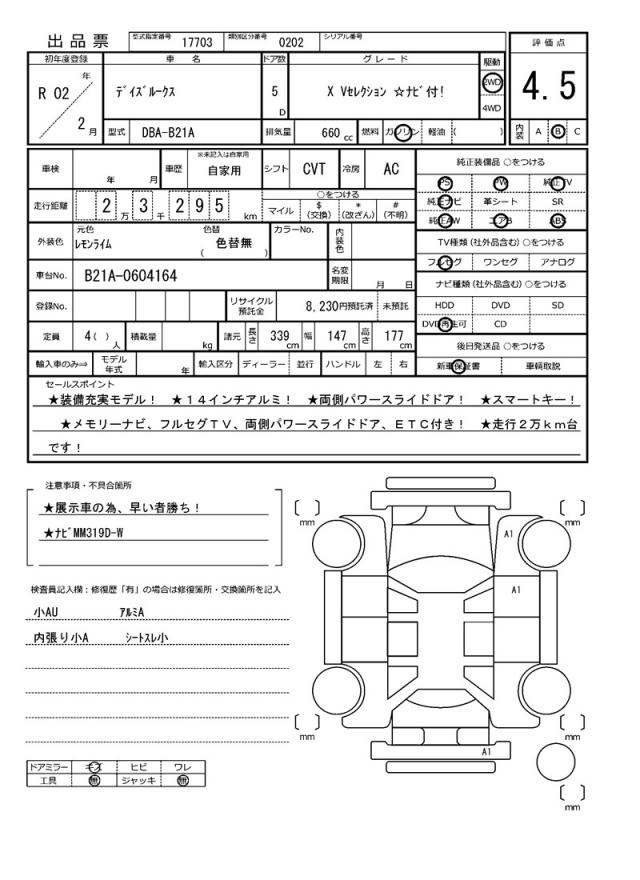 出品票 型式指定番号 17703 類別区分番号 0202 シリアル番号
初年度登録 車名 ドア数 グレード 駆動 評価点
R 02 年 2 月 デイズルークス 5 D X Vセレクション ☆ナビ付! 2WD 4WD 4.5
型式 DBA-B21A 排気量 660 cc 燃料 ガソリン 軽油 ( ) 内装 A B C
車検 年 月 車歴 ※未記入は自家用 自家用 シフト CVT 冷房 AC
走行距離 2 万 3 千 2 9 5 km ○をつける
マイル $ (交換) * (改ざん) # (不明)
外装色 元色 レモンライム 色替 ( 色替無 ) カラーNo. 内装色
車台No. B21A-0604164 名変期限 月 日
登録No. リサイクル預託金 8,230円預託済 未預託
定員 4( ) 人 積載量 kg 諸元 長さ 339 cm 幅 147 cm 高さ 177 cm
輸入車のみ⇒ モデル年式 年 輸入区分 ディーラー 並行 ハンドル 左 右
純正装備品 ○をつける
PS PW 純正TV
純正ナビ 革シート SR
純正AW エアB ABS
TV種類(社外品含む)○をつける
フルセグ ワンセグ アナログ
ナビ種類(社外品含む)○をつける
HDD DVD SD
DVD再生可 CD
後日発送品 ○をつける
新車保証書 車輌取説
セールスポイント
★装備充実モデル! ★14インチアルミ! ★両側パワースライドドア! ★スマートキー!
★メモリーナビ、フルセグTV、両側パワースライドドア、ETC付き! ★走行2万km台
です!
注意事項・不具合箇所
★展示車の為、早い者勝ち!
★ナビMM319D-W
検査員記入欄:修復歴「有」の場合は修復箇所・交換箇所を記入
小AU アルミA
内張り小A シートスレ小
ドアミラー キズ ヒビ ワレ
工具 無 ジャッキ 無
mm mm
A1
A1
mm mm
A1
mm